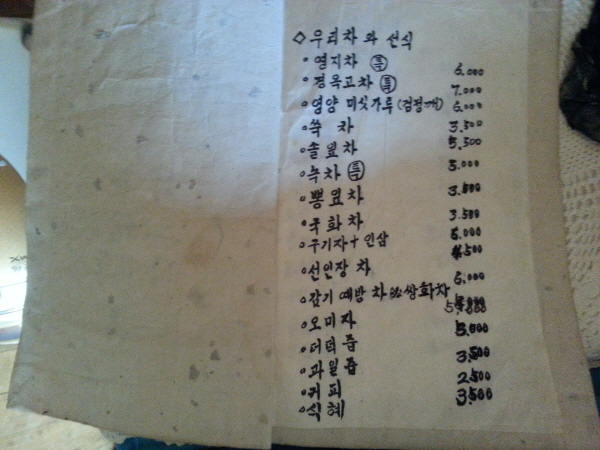 ◇우리차와 선식
•영지차 ㊕ 6.000
•경옥고차 ㊕ 7.000
•영양 미싯가루(검정깨) 6.000
•쑥 차 3.500
•솔잎차 5.500
•녹차 ㊕ 5.000
•뽕잎차 3.500
•국화차 3.500
•구기자+인삼 6.000
•선인장 차 4.500
•감기 예방 차 쌍화차 6.000
•오미자
•더덕즙 5.500
•과일즙 3.500
•커피 2.500
•식혜 3.500